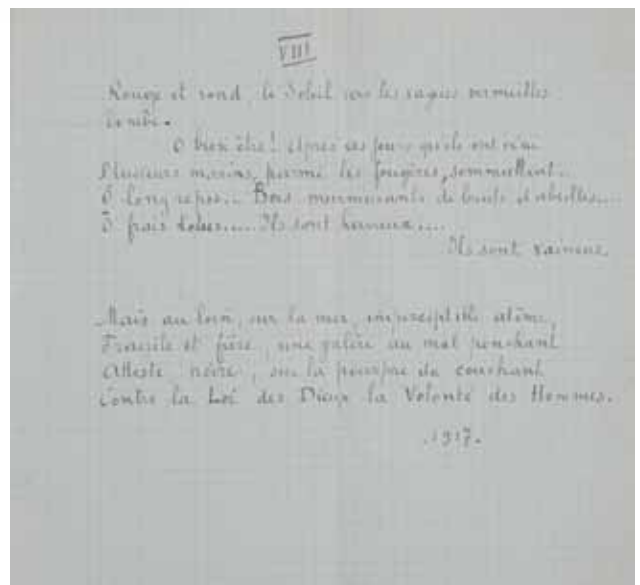 VIII
Rouge et rond, le Soleil vers les vagues vermeilles
tombe.
O bien être! Après ces jours qu'ils ont
Plusieurs marins, parmi les fougères, sommeillent...
Ô long repos... Bois murmurants de bruits d'abeilles....
Ô frais.... Ils sont heureux....
Ils sont vaincus.
Mais au loin, sur la mer, imperceptible atôme,
et fière, une galère au mat penchant
Atteste, noire, sur la pourpre du couchant
Contre la Loi des Dieux la Volonté des Hommes.
1917.